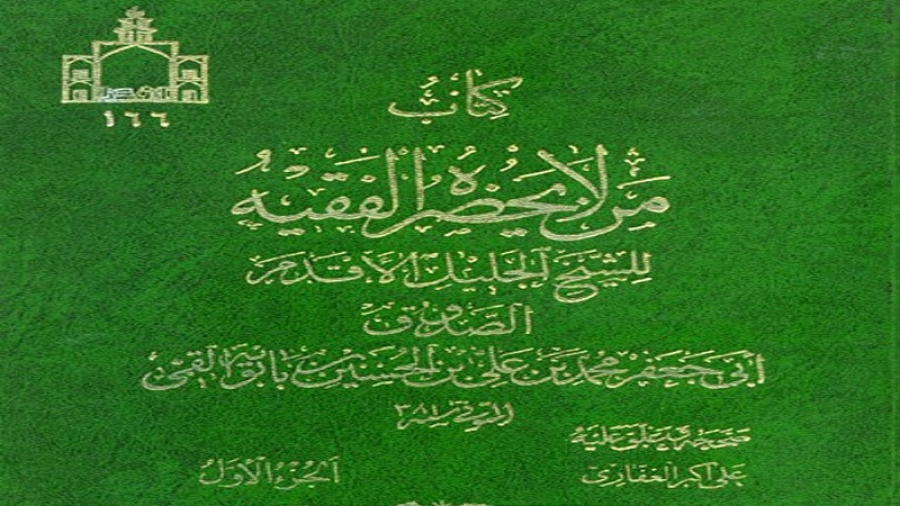 ١٦٦
كتاب
من لا يحضره الفقيه
للشيخ الجليل الأقدم
الصدوق
أبي جعفر محمد بن علي بن الحسين بن بابويه القمي
المتوفى سنة ٣٨١
صححه وعلق عليه
علي أكبر الغفاري
الجزء الأول